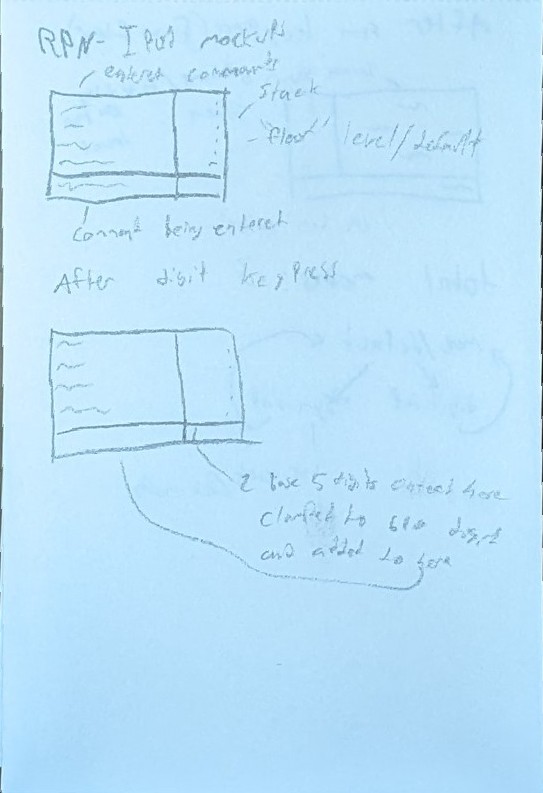 RPN- IPod mockups
entered commands
Stack
"floor" level/default
Command being entered
After digit keypress
2 base 5 digits entered here
to digit
and added to here